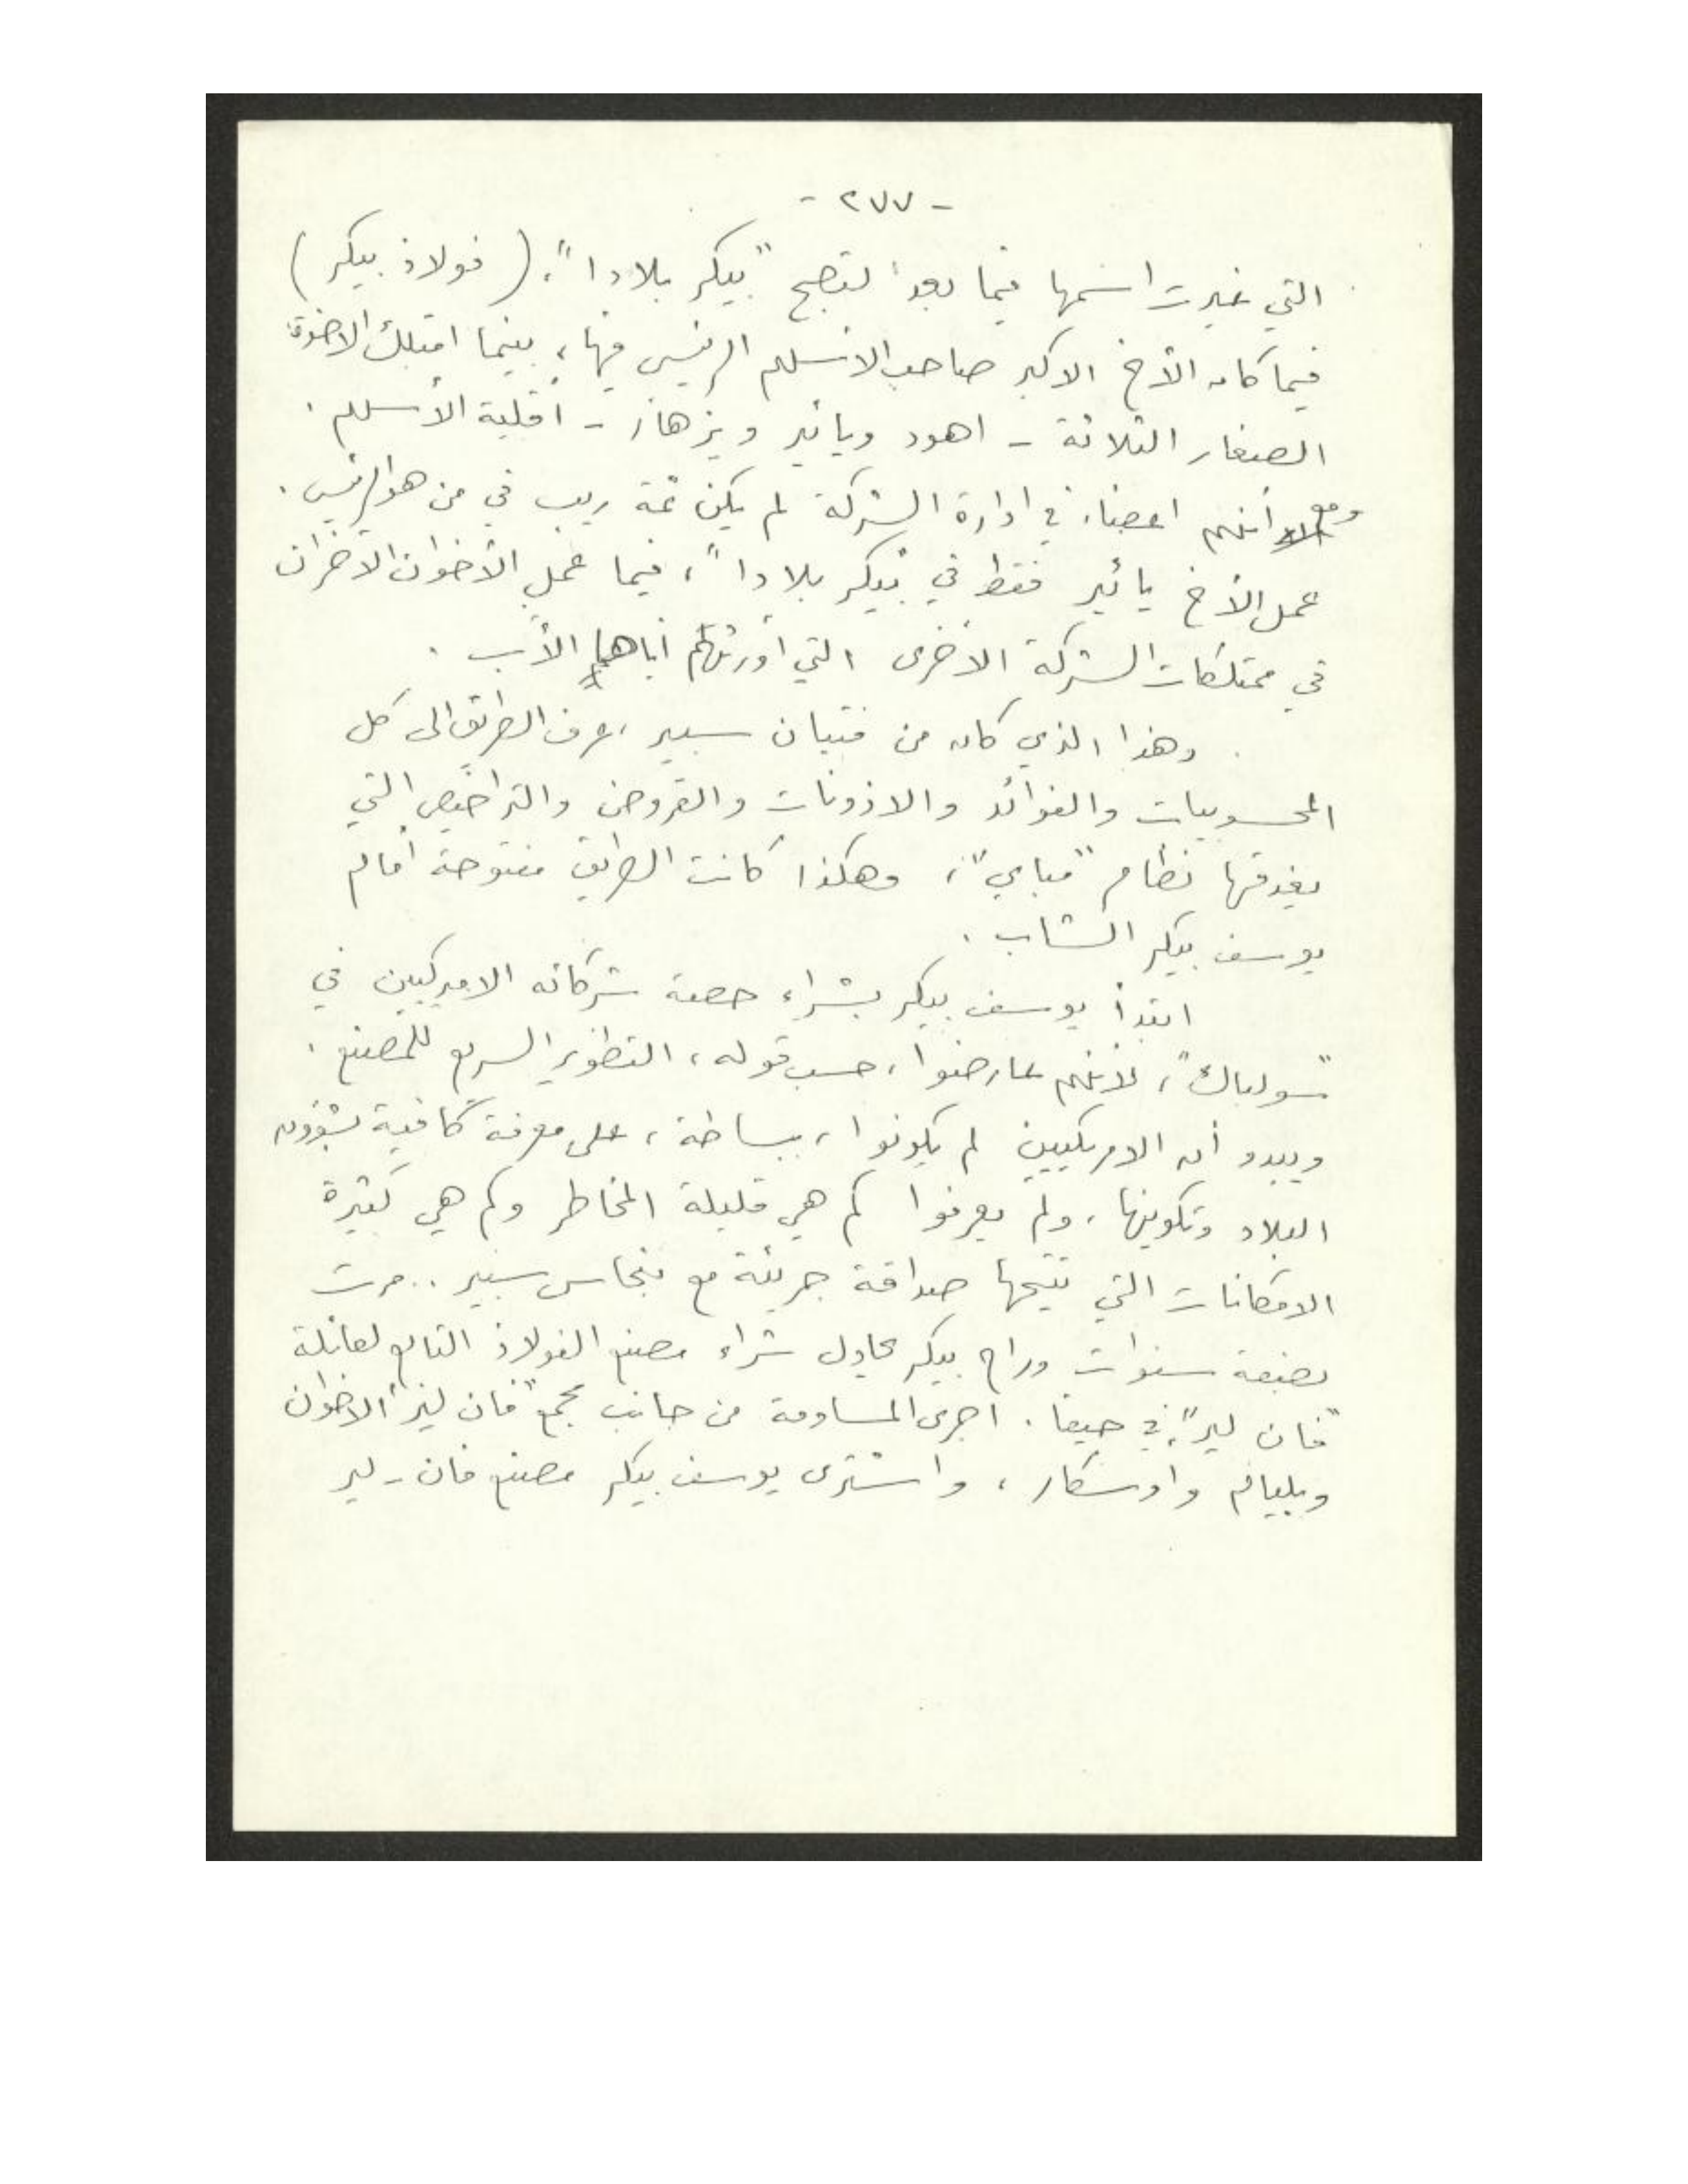 - ٢٧٧ -
التي غيرت اسمها فيما بعد لتصبح "بيكر بلادا". (فولاذ بيكر)
فيما كان الأخ الاكبر صاحب الاسهم الرئيسي فيها، بينما امتلك الاخوة
الصغار الثلاثة - اهود ويائير ويزهار - أقلية الأسهم.
ومع أنهم اعضاء في ادارة الشركة لم يكن ثمة ريب في من هو الرئيس.
عمل الأخ يائير فقط في "بيكر بلادا"، فيما عمل الأخوان الآخران
في ممتلكات الشركة الاخرى التي أورثهم اياها الأب.
وهذا الذي كان من فتيان سبير، عرف الطريق الى كل
المحسوبيات والفوائد والاذونات والقروض والتراخيص التي
يغدقها نظام "مباي"، وهكذا كانت الطريق مفتوحة أمام
يوسف بيكر الشاب.
ابتدأ يوسف بيكر بشراء حصة شركائه الاميركيين في
"سولباك"، لأنهم عارضوا، حسب قوله، التطوير السريع للمصنع.
ويبدو أن الامريكيين لم يكونوا، ببساطة، على معرفة كافية بشؤون
البلاد وتكوينها، ولم يعرفوا كم هي قليلة المخاطر وكم هي كثيرة
الامكانات التي تتيحها صداقة جريئة مع بنحاس سبير.. مرت
بضعة سنوات وراح بيكر يحاول شراء مصنع الفولاذ التابع لعائلة
"فان لير" في حيفا. اجرى المساومة من جانب مجمع "فان لير" الاخوان
ويليام واوسكار، واشترى يوسف بيكر مصنع فان - لير